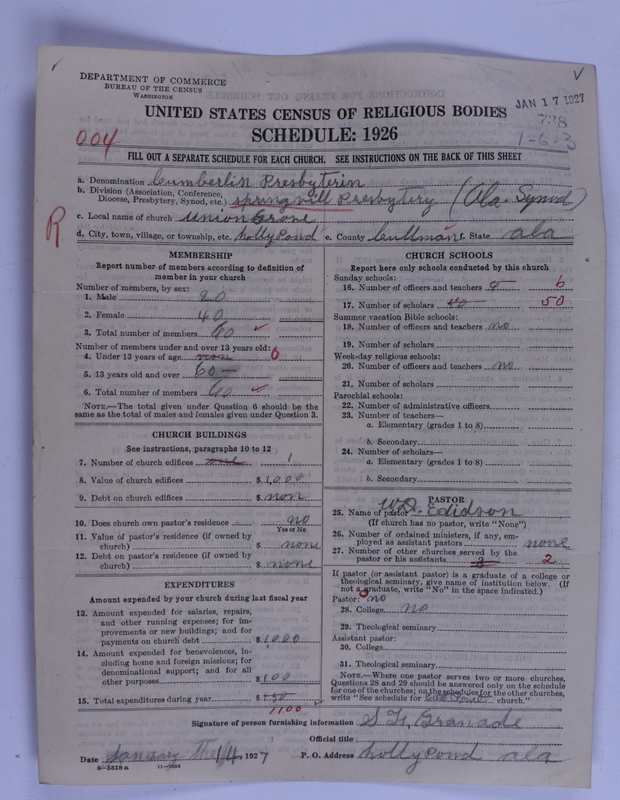 DEPARTMENT OF COMMERCE
BUREAU OF THE CENSUS
WASHINGTON
JAN 17 1927
788
1-6-3
UNITED STATES CENSUS OF RELIGIOUS BODIES
004
SCHEDULE: 1926
FILL OUT A SEPARATE SCHEDULE FOR EACH CHURCH. SEE INSTRUCTIONS ON THE BACK OF THIS SHEET
a. Denomination Cumberlin Presbyterin
b. Division (Association, Conference,
Diocese, Presbytery, Synod, etc.) springvill Presbytery (Ala. Synod)
c. Local name of church Union Grove
R
d. City, town, village, or township, etc. holly Pond e. County Cullman f. State ala
MEMBERSHIP
Report number of members according to definition of
member in your church
Number of members, by sex:
1. Male 20
2. Female 40
3. Total number of members 60 ✓
Number of members under and over 13 years old:
4. Under 13 years of age non 0
5. 13 years old and over 60
6. Total number of members 60 ✓
NOTE.—The total given under Question 6 should be the
same as the total of males and females given under Question 3.
CHURCH BUILDINGS
See instructions, paragraphs 10 to 12
7. Number of church edifices one 1
8. Value of church edifices $1,000
9. Debt on church edifices $ non
10. Does church own pastor's residence no
Yes or No
11. Value of pastor's residence (if owned by
church) $ none
12. Debt on pastor's residence (if owned by
church) $ none
EXPENDITURES
Amount expended by your church during last fiscal year
13. Amount expended for salaries, repairs,
and other running expenses; for im-
provements or new buildings; and for
payments on church debt $1000
14. Amount expended for benevolences, in-
cluding home and foreign missions; for
denominational support; and for all
other purposes $100
15. Total expenditures during year $
1100 ✓
CHURCH SCHOOLS
Report here only schools conducted by this church
Sunday schools:
16. Number of officers and teachers 6
17. Number of scholars 50
Summer vacation Bible schools:
18. Number of officers and teachers no
19. Number of scholars
Week-day religious schools:
20. Number of officers and teachers no
21. Number of scholars
Parochial schools:
22. Number of administrative officers
23. Number of teachers—
a. Elementary (grades 1 to 8)
b. Secondary
24. Number of scholars—
a. Elementary (grades 1 to 8)
b. Secondary
PASTOR
25. Name of pastor W.D. Edidson
(If church has no pastor, write "None")
26. Number of ordained ministers, if any, em-
ployed as assistant pastors none
27. Number of other churches served by the
pastor or his assistants 3 2
If pastor (or assistant pastor) is a graduate of a college or
theological seminary, give name of institution below. (If
not a graduate, write "No" in the space indicated.)
Pastor: no
28. College no
29. Theological seminary
Assistant pastor:
30. College
31. Theological seminary
NOTE.—Where one pastor serves two or more churches,
Questions 28 and 29 should be answered only on the schedule
for one of the churches; on the schedules for the other churches,
write "See schedule for church."
Signature of person furnishing information Granade
Official title
Date January The 14, 1927 P. O. Address holly pond ala
8-5518a 11-9264